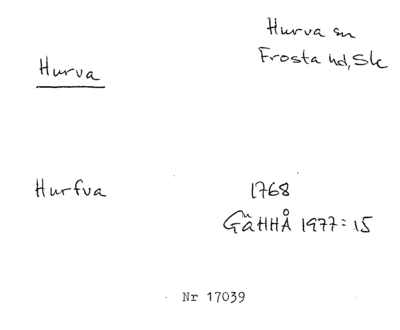 Hurva
Hurva sn
Frosta hd, Sk
Hurfva
1768
GäHHÅ 1977:15
Nr 17039